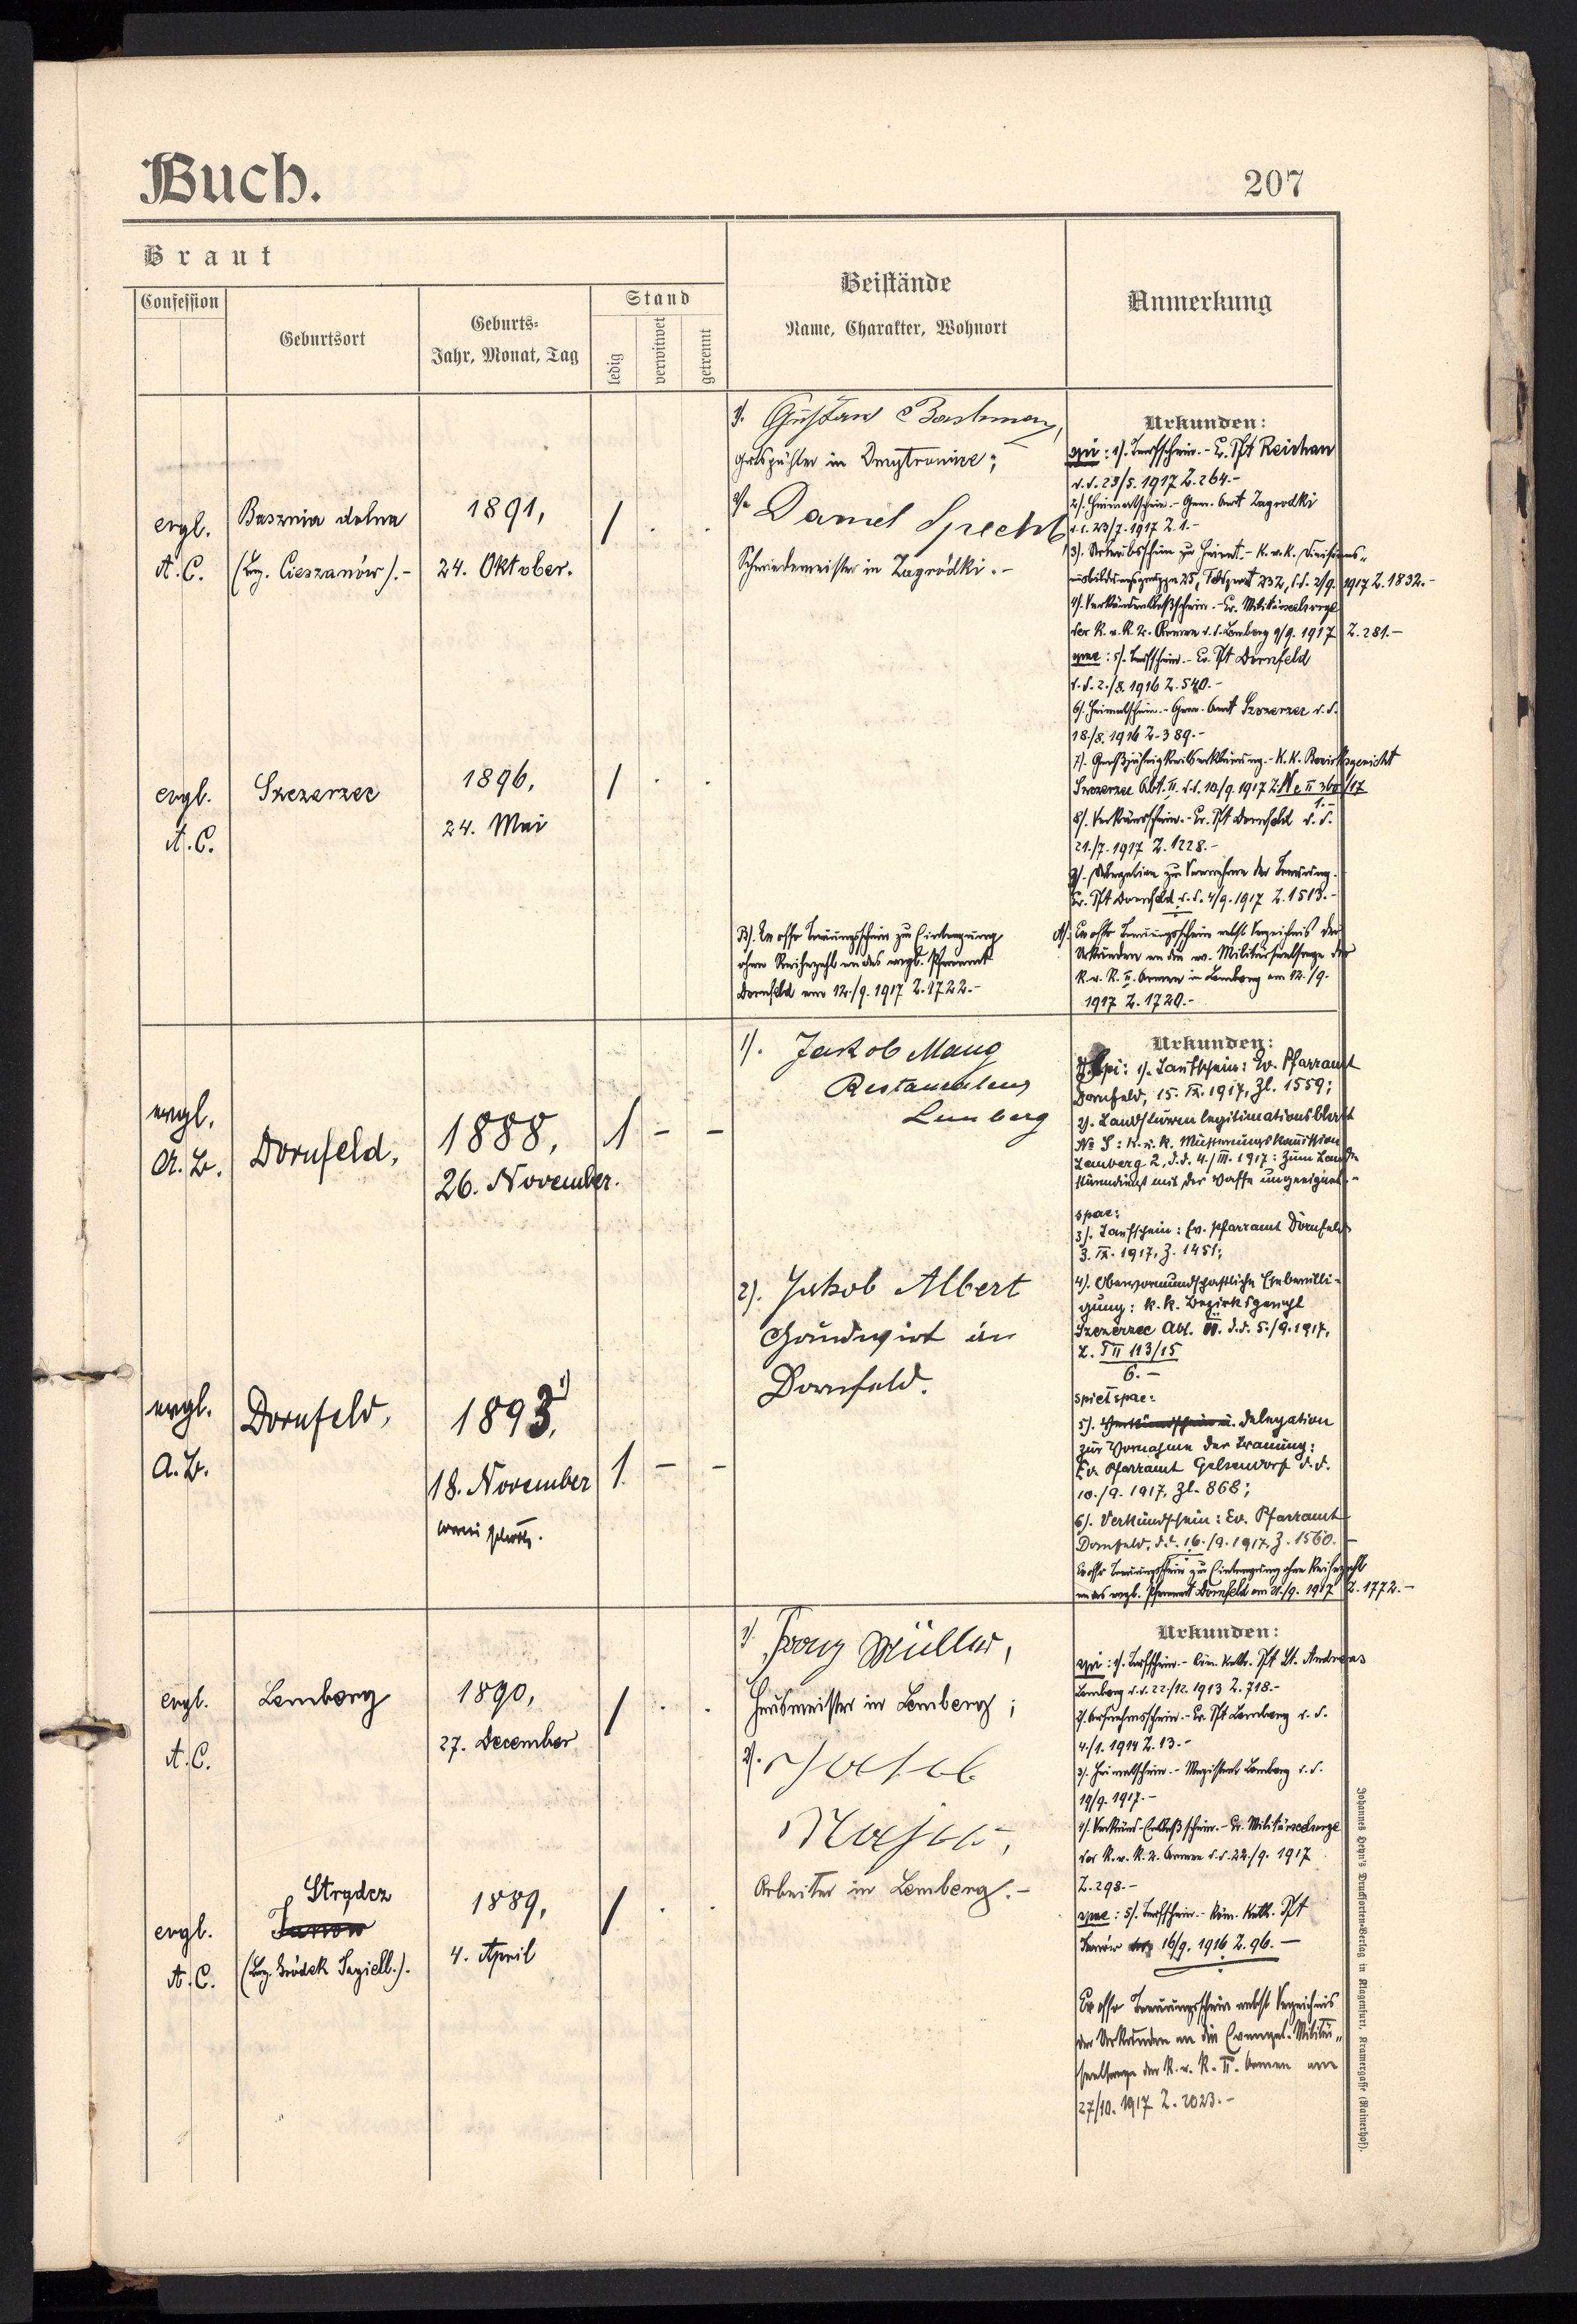 Buch.
207
Braut
Confession
Geburtsort
Geburts-
Jahr, Monat, Tag
Stand
ledig
verwitwet
getrennt
Beistände
Name, Charakter, Wohnort
Anmerkung
evgl.
A.C.
Basznia dolna
(Bez. Cieszanów).-
1891,
24. Oktober.
/ . .
evgl.
A.C.
Szczerzec
1896,
24. Mai
/ . .
1). Gustav
in Dmytrowice;
2). Daniel Specht,
Schmiedemeister in Zagródki.-
B). Ex offo Trauungsschein zur Eintragung
ohne Reihezahl an das evgl. Pfarramt
Dornfeld am 12./9. 1917 Z. 1722.-
Urkunden:
spi: 1). Taufschein.- Ev. Pft Reichau
d.d. 23/5. 1917 Z. 264.-
2). Heimatschein.- Gem. Amt Zagrodki
d.d. 23/7. 1917 Z. 1.-
3). Urlaubsschein zur Heirat.- K.u.K. Divisions-
ausbildungsgruppe 25, Feldpost 232, d.d. 2/9. 1917 Z. 1832.-
4). Ev. Militärseelsorge
der K.u.K. 2. Armee d.d. Lemberg 9/9. 1917 Z. 281.-
spae: 5). Taufschein.- Ev. Pft Dornfeld
d.d. 2./8. 1916 Z. 540.-
6). Heimatschein.- Gem. Amt Szczerzec d.d.
18./8. 1916 Z. 389.-
7). Großjährigkeitserklärung.- K.K. Bezirksgericht
Szczerzec Abt. II. d.d. 10./9. 1917 Z.
8). Verkündschein.- Ev. Pft Dornfeld d.d.
21./7. 1917 Z. 1228.-
9). Delegation zur Vornahme der Trauung.-
Ev. Pft Dornfeld d.d. 4/9. 1917 Z. 1513.-
A). Ex offo Trauungsschein nebst Verzeichnis der
Urkunden an die ev. Militärseelsorge der
K.u.K. II. Armee in Lemberg am 12./9.
1917 Z. 1720.-
evgl.
A.B.
Dornfeld,
1888,
26. November.
1 - -
evgl.
A.B.
Dornfeld,
1893,
18. November
1. - -
1). Jakob Mang
Restaurateur
Lemberg
2). Jakob Albert
Grundwirt in
Dornfeld.
Urkunden:
spi: 1). Taufschein: Ev. Pfarramt
Dornfeld, 15. IX. 1917, Zl. 1559;
2). Landsturmlegitimationsblatt
K.u.K. Musterungskommission
Lemberg 2, d.d. 4./III. 1917: Zum Land-
sturmdienst mit der Waffe ungeeignet.-
spae:
3). Taufschein: Ev. Pfarramt Dornfeld
3. IX. 1917, Z. 1451;
4). Obervormundschaftliche Ehebewilli-
gung: K.K. Bezirksgericht
Szczerzec Abt. II. d.d. 5./9. 1917,
Z. P II 113/15
6.-
spi et spae:
5). Delegation
zur Vornahme der Trauung:
Ev. Pfarramt Gelsendorf d.d.
10./9. 1917, Zl. 868;
6). Verkündschein: Ev. Pfarramt
Dornfeld, d.d. 16./9. 1917, Z. 1560.-
Ex offo Trauungsschein zur Eintragung ohne Reihezahl
an das evgl. Pfarramt Dornfeld am 21./9. 1917 Z. 1772.-
evgl.
A.C.
Lemberg
1890,
27. December
/ . .
evgl.
A.C.
Stradcz
Janow
(Bez. Gródek Jagiell.).
1889,
4. April
/ . .
1). Franz Müller,
Hausmeister in Lemberg;
2). Jakob
Arbeiter in Lemberg.-
Urkunden:
spi: 1). Taufschein.- Röm. Kath. Pft St. Andreas
Lemberg d.d. 22./12. 1913 Z. 718.-
2). Aufnahmsschein.- Ev. Pft Lemberg d.d.
4./1. 1914 Z. 13.-
3). Heimatschein.- Magistrat Lemberg d.d.
19/9. 1917.-
4). Ev. Militärseelsorge
der K.u.K. 2. Armee d.d. 22./9. 1917
Z. 298.-
spae: 5). Taufschein.- Röm. Kath. Pft
Janów 16/9. 1916 Z. 96.-
Ex offo Trauungsschein nebst Verzeichnis
der Urkunden an die Evangel. Militär-
seelsorge der K.u.K. II. Armee am
27/10. 1917 Z. 2023.-
Johannes Heyn's Drucksorten-Verlag in Klagenfurt, Kramergasse (Rainerhof).